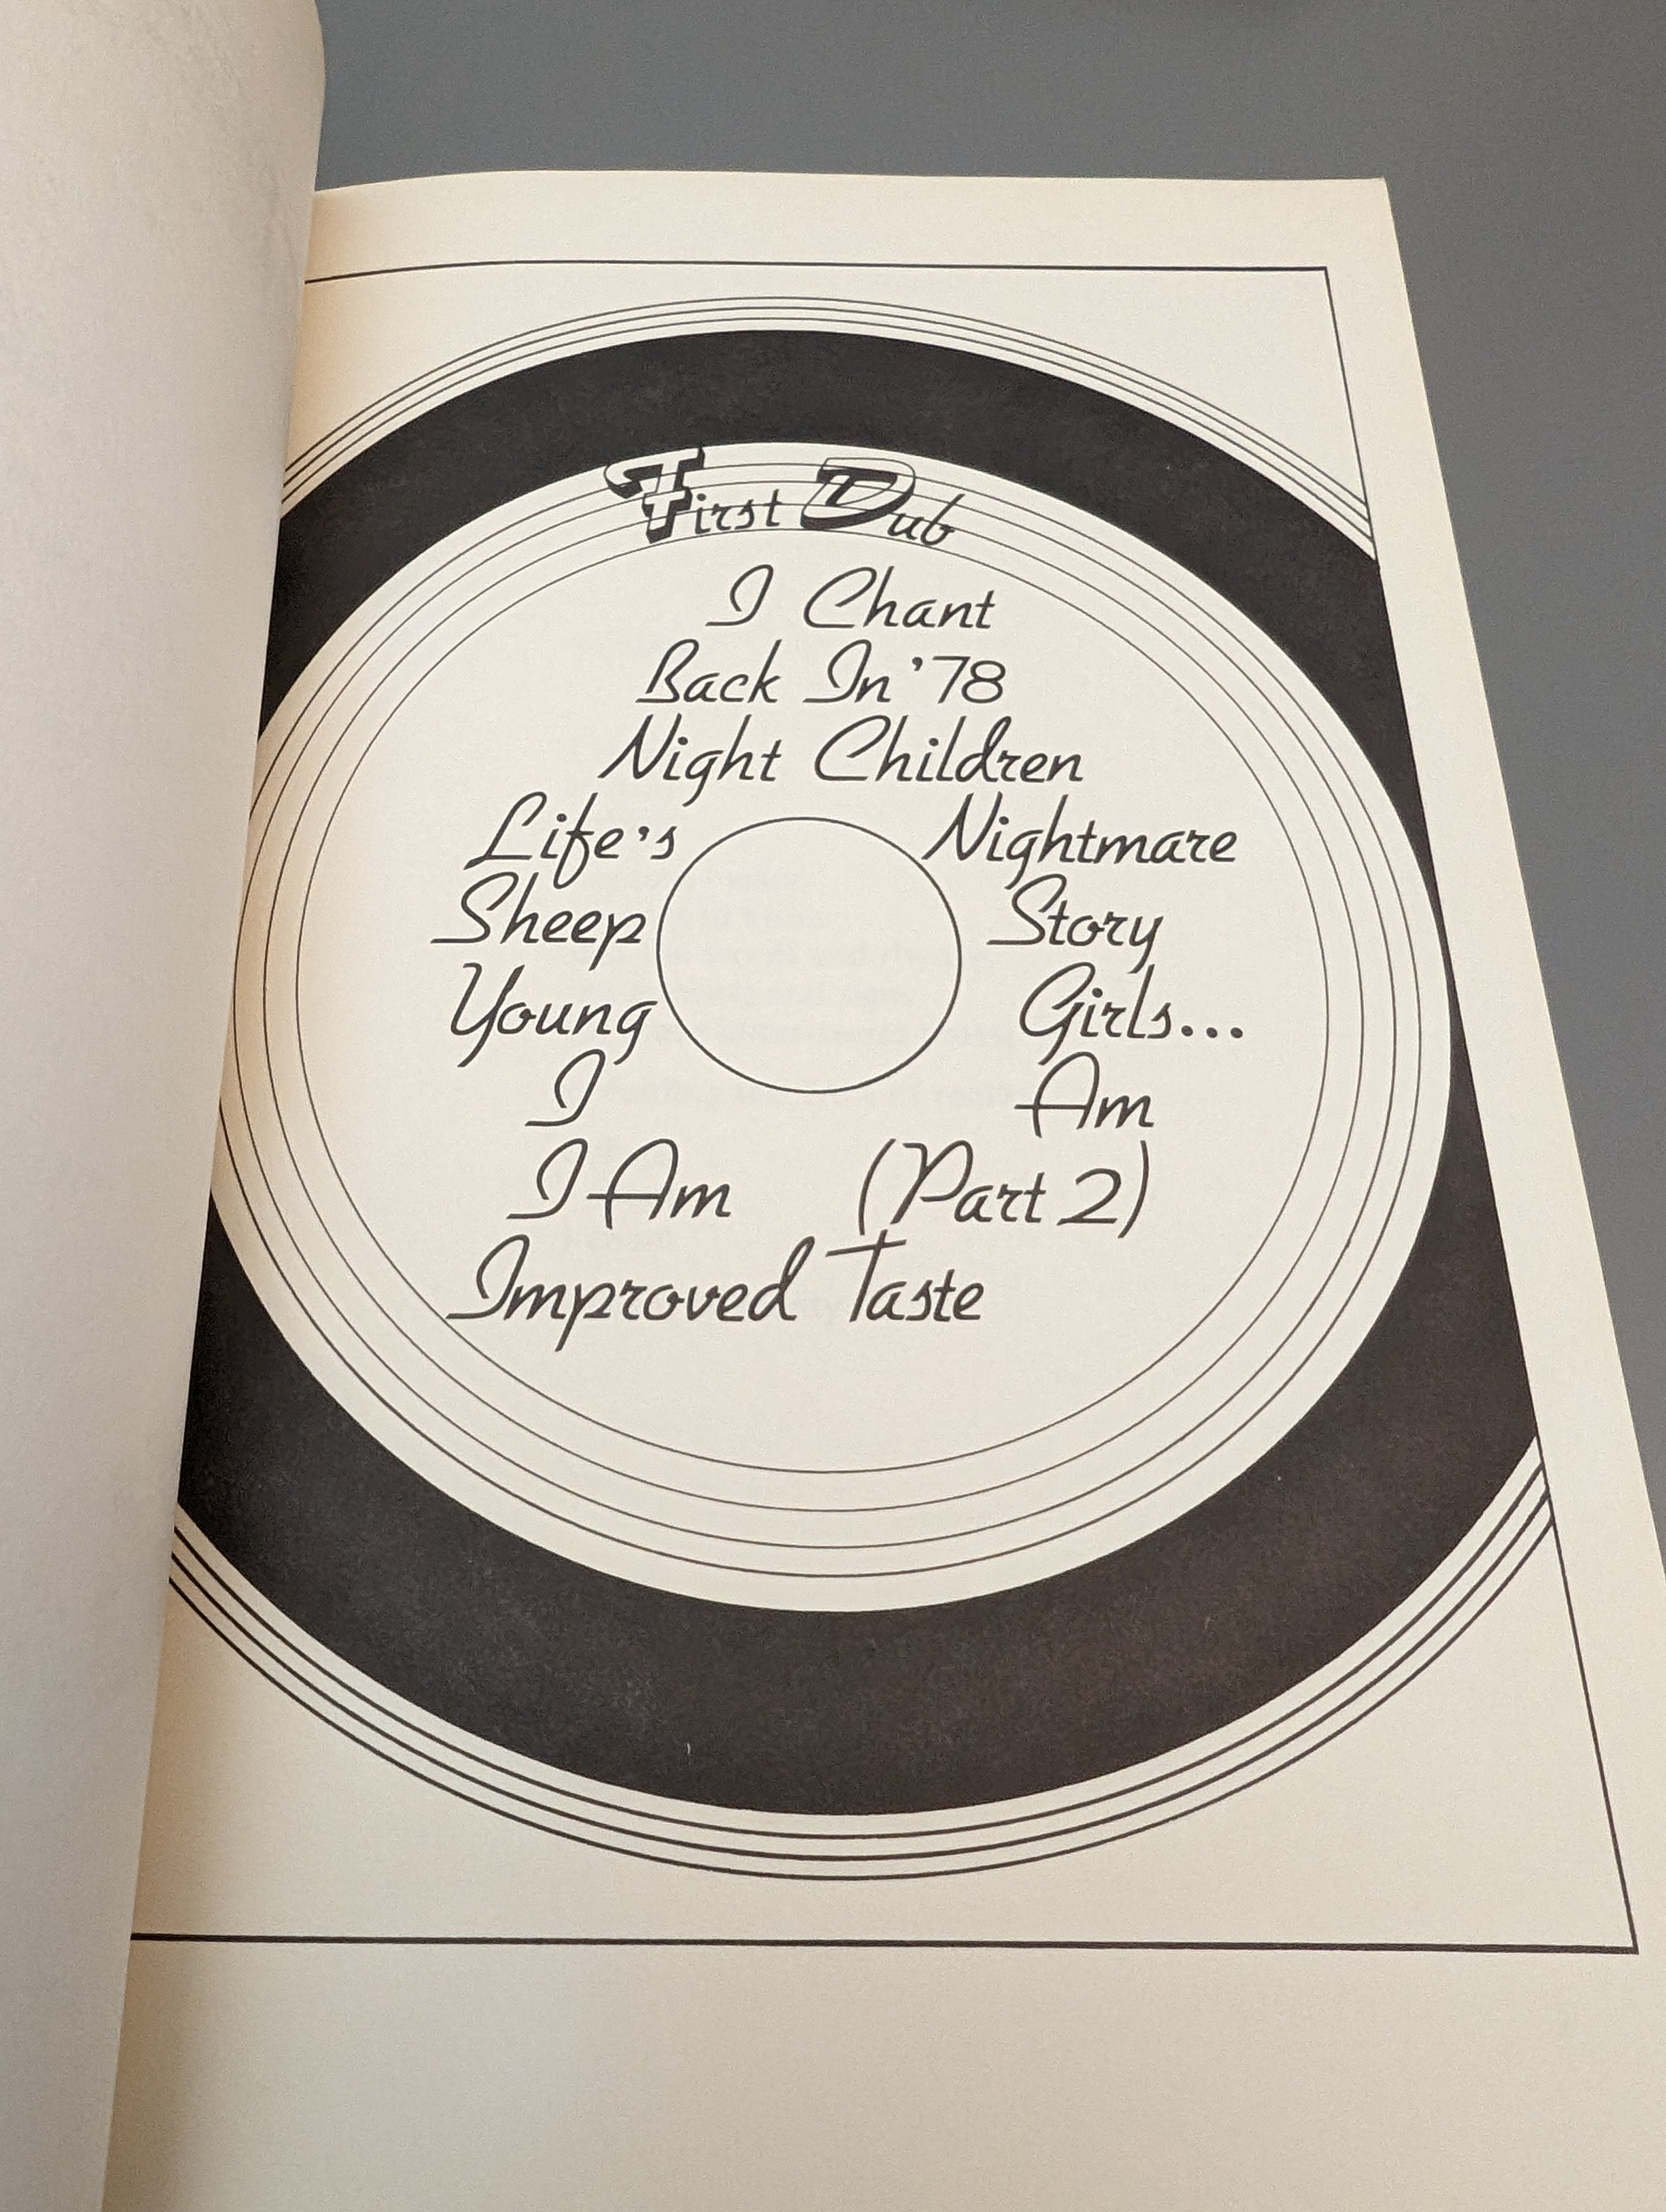 First Dub
I Chant
Back In '78
Night Children
Life's Nightmare
Sheep Story
Young Girls...
I Am
I Am (Part 2)
Improved Taste